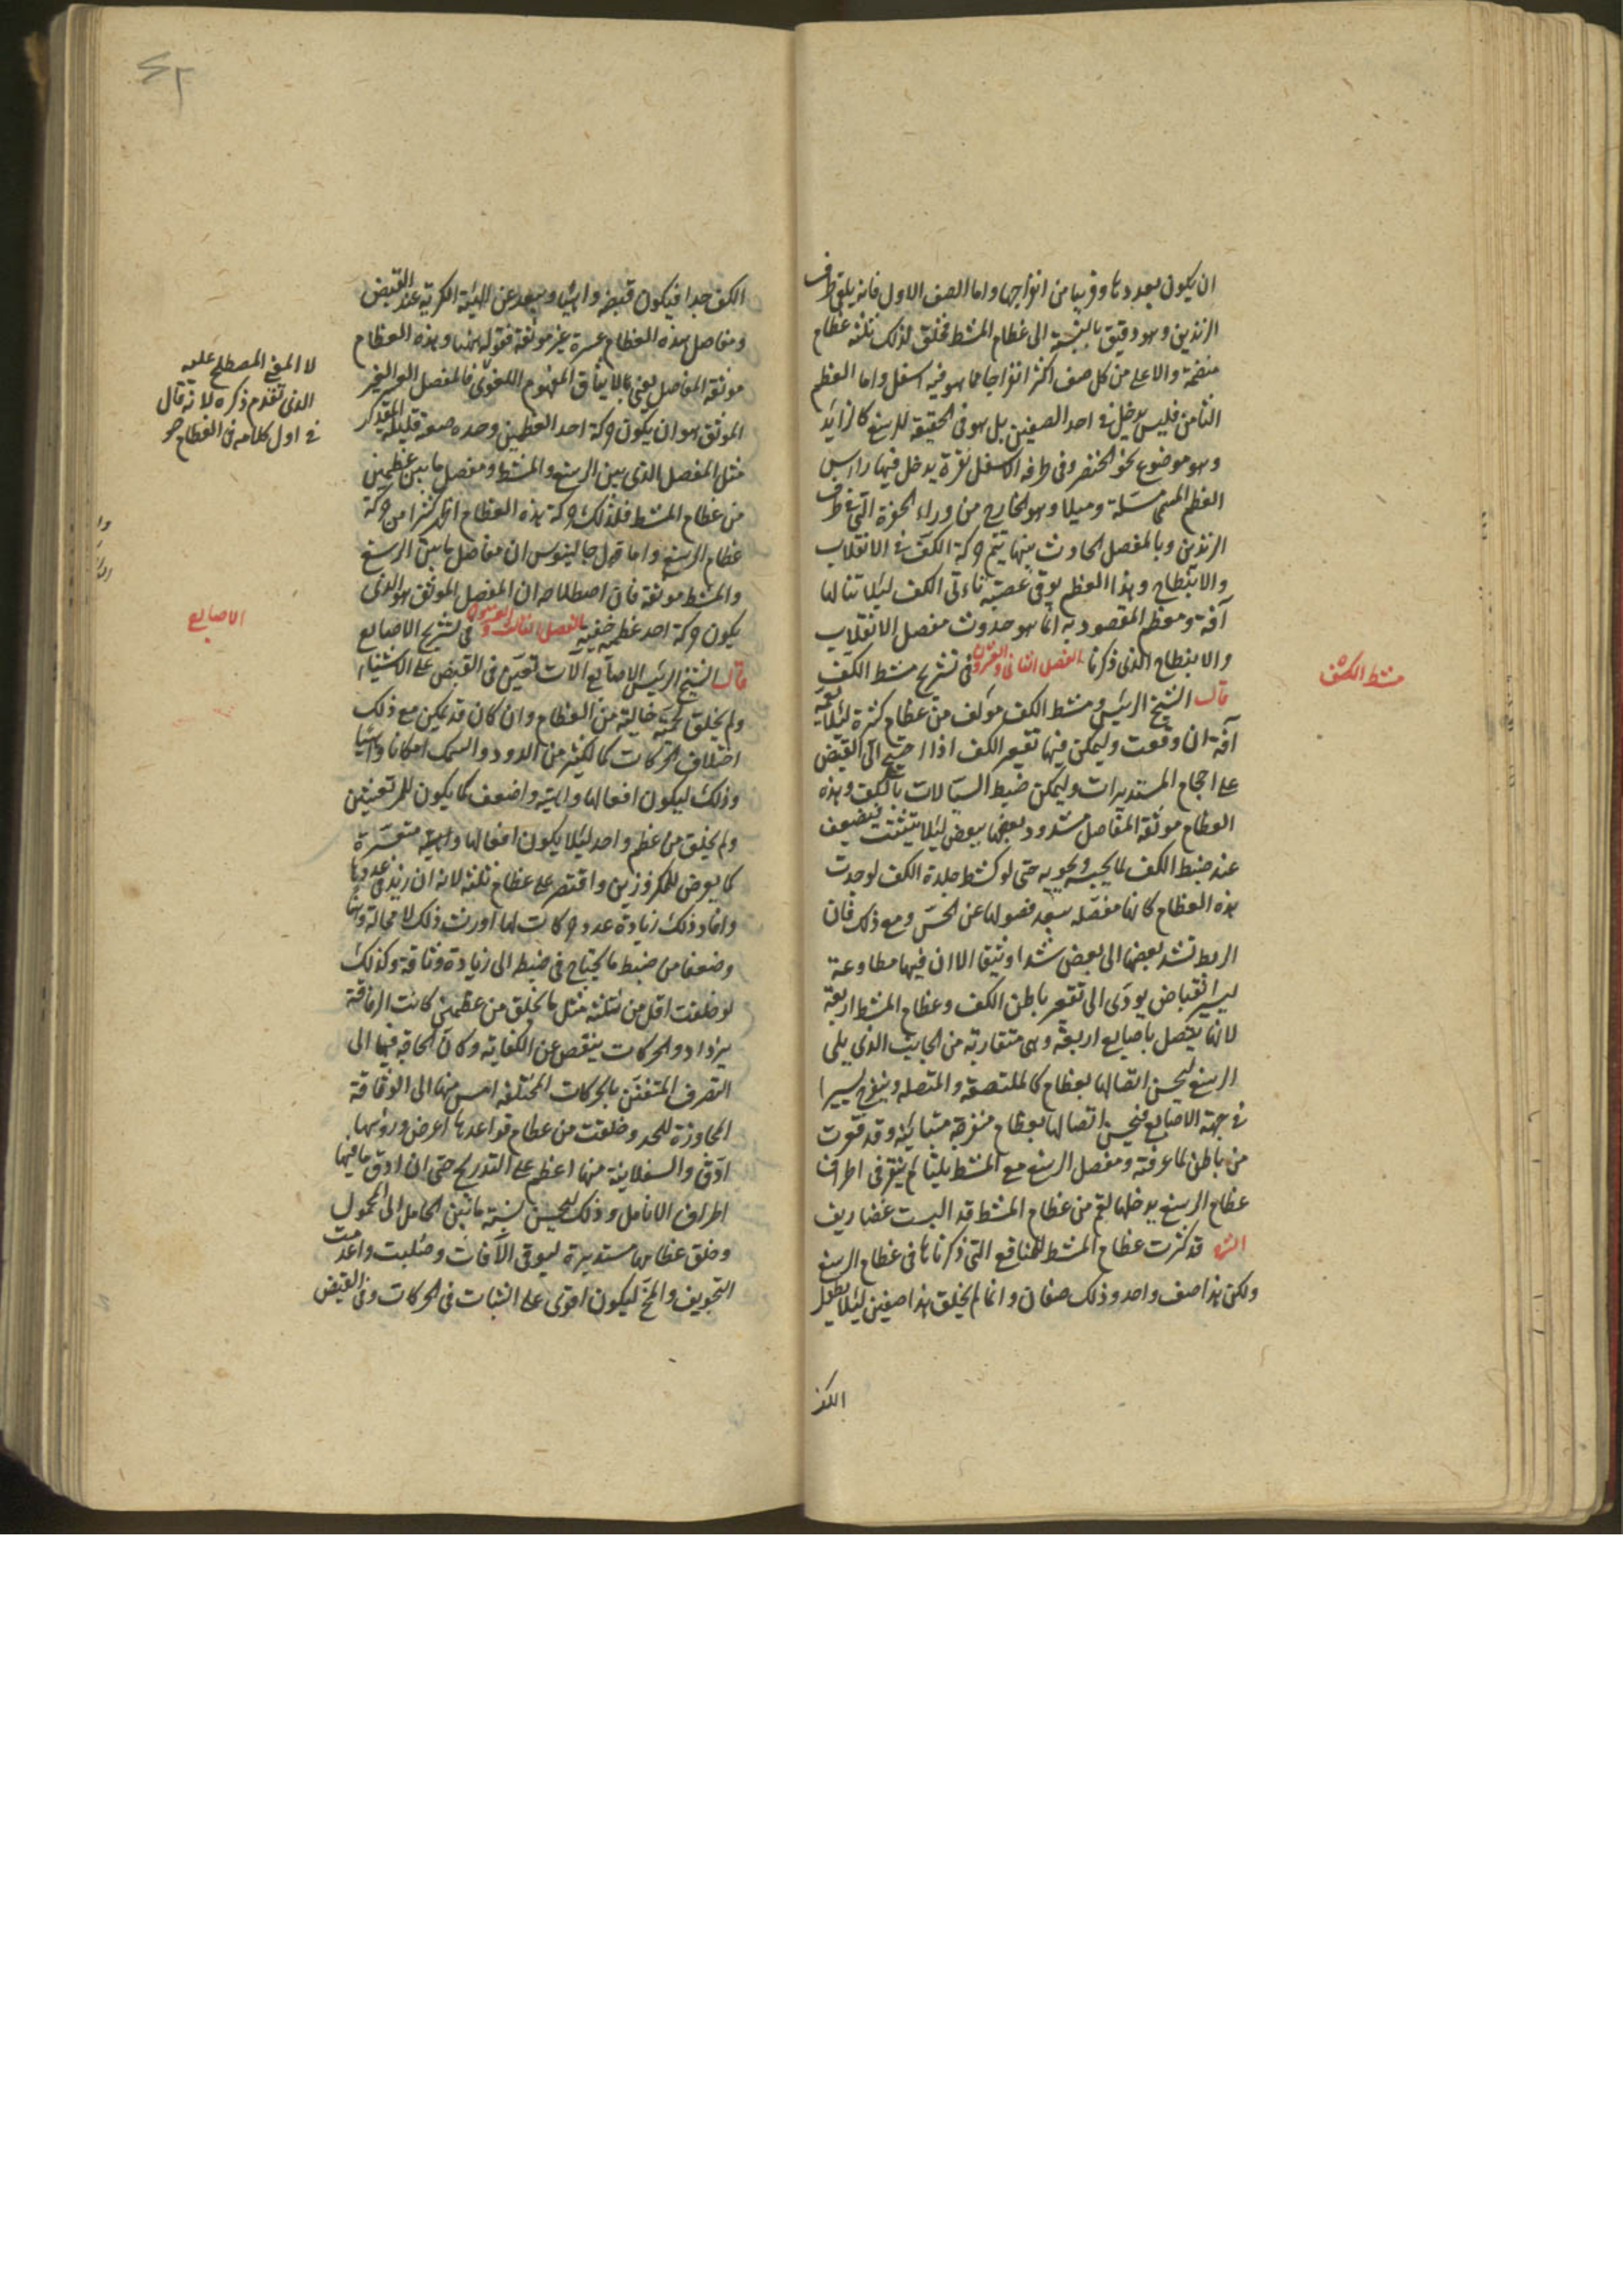 ان يكون بعددها وقريبا من انفراجها واما الصف الاول فانه يلقى طرف
الزندين وهو دقيق بالنسبة الى عظام المشط فخلق لذلك ثلثة عظام
منضمة والاعلى من كل صف اكثر انفراجا مما هو فيه اسفل واما العظم
الثامن فليس يدخل في احد الصفين بل هو في الحقيقة للرسغ كالزايد
وهو موضوع نحو الخنصر وفي طرفه الاسفل نقرة يدخل فيها راس
العظم المسمى مسلة وميلا وهو الخارج من وراء الحزة التي في طرف
الزندين وبالمفصل الحادث بينها يتم حركة الكف في الانقلاب
والانبطاح وهذا العظم يوقى عصبة تاتى الكف ليلا تنالها
آفة ومعظم المقصود به انما هو حدوث مفصل الانقلاب
والانبطاح الذى ذكرنا الفصل الثانى والعشرون في تشريح مشط الكف
مشط الكف
قال الشيخ الرئيس ومشط الكف مؤلف من عظام كثرة ليلا تعمه
آفة ان وقعت وليمكن فيها تقعير الكف اذا احتيج الى القبض
على احجام المستديرات وليمكن ضبط السيالات بالكف وهذه
العظام موثقة المفاصل مشدود بعضها ببعض ليلا يتشتت فيضعف
عند ضبط الكف لما يحبسه ويحويه حتى لو كشط جلدة الكف لوجدت
هذه العظام كانها متصلة يبعد فصولها عن الحس ومع ذلك فان
الربط تشد بعضها الى بعض شدا وثيقا الا ان فيها مطاوعة
ليسير انقباض يودى الى تقعير باطن الكف وعظام المشط اربعة
لانها يتصل باصابع اربعة وهى متقاربة من الجانب الذى يلى
الرسغ ليحسن اتصالها بعظام كالملتصقة والمتصلة وينفرج يسيرا
في جهة الاصابع فيحسن اتصالها بعظام منفرجة متباينة وقد قعرت
من باطن لما عرفته ومفصل الرسغ مع المشط يلتئم بنقر في اطراف
عظام الرسغ يدخلها لقم من عظام المشط قد البست غضاريف
الش قد كثرت عظام المشط للمنافع التى ذكرناها في عظام الرسغ
ولكن هذا صف واحد وذلك صفان وانما لم يخلق هذا صفين ليلا يطول
الكف
الكف جدا فيكون قبضه واهيا ويبعد عن الهيئة الكرية عند القبض
ومفاصل هذه العظام عسرة غير موثقة فقوله ههنا وهذه العظام
موثقة المفاصل يعنى بالايثاق المفهوم اللغوى فالمفصل العسر الغير
الموثق هو ان يكون حركة احد العظمين وحده صعبة قليلة المقدار
لا المعنى المصطلح عليه
الذى تقدم ذكره لانه قال
في اول كلامه فى العظام هو
مثل المفصل الذى بين الرسغ والمشط ومفصل ما بين عظمين
من عظام المشط فلذلك حركة هذه العظام اظهر كثيرا من حركة
عظام الرسغ واما قول جالينوس ان مفاصل ما بين الرسغ
والمشط موثقة فان اصطلاحه ان المفصل الموثق هو الذى
يكون حركة احد عظميه خفية الفصل الثالث والعشرون في تشريح الاصابع
الاصابع
قال الشيخ الرئيس الاصابع آلات تعين في القبض على الاشياء
ولم يخلق لحمية خالية من العظام وان كان قد يمكن مع ذلك
اختلاف الحركات كما لكثير من الدود والسمك امكانا واهيا
وذلك ليكون افعالها واهية واضعف كما يكون للمرتعشين
ولم يخلق من عظم واحد ليلا يكون افعالها واهية متعسرة
كما يعرض للمكزوزين واقتصر على عظام ثلثة لانه ان زيد في عددها
وافاد ذلك زيادة عدد حركات لها اورث ذلك لا محالة وهنا
وضعفا من ضبط ما يحتاج فى ضبطه الى زيادة وثاقة وكذلك
لو خلقت اقل من ثلثة مثل ما يخلق من عظمين كانت الوثاقة
يزداد والحركات ينتقص عن الكفاية وكان الحاجة فيها الى
التصرف المتفنن بالحركات المختلفة امس منها الى الوثاقة
المجاوزة للحد وخلقت من عظام قواعدها اعرض ورؤسها
ادق والسفلانية منها اعظم على التدريج حتى ان ادق ما فيها
اطراف الانامل وذلك ليحسن نسبة ما بين الحامل الى المحمول
وخلق عظامها مستديرة ليوقى الآفات وصلبت واعدمت
التجويف والمخ ليكون اقوى على الثبات في الحركات وفي القبض